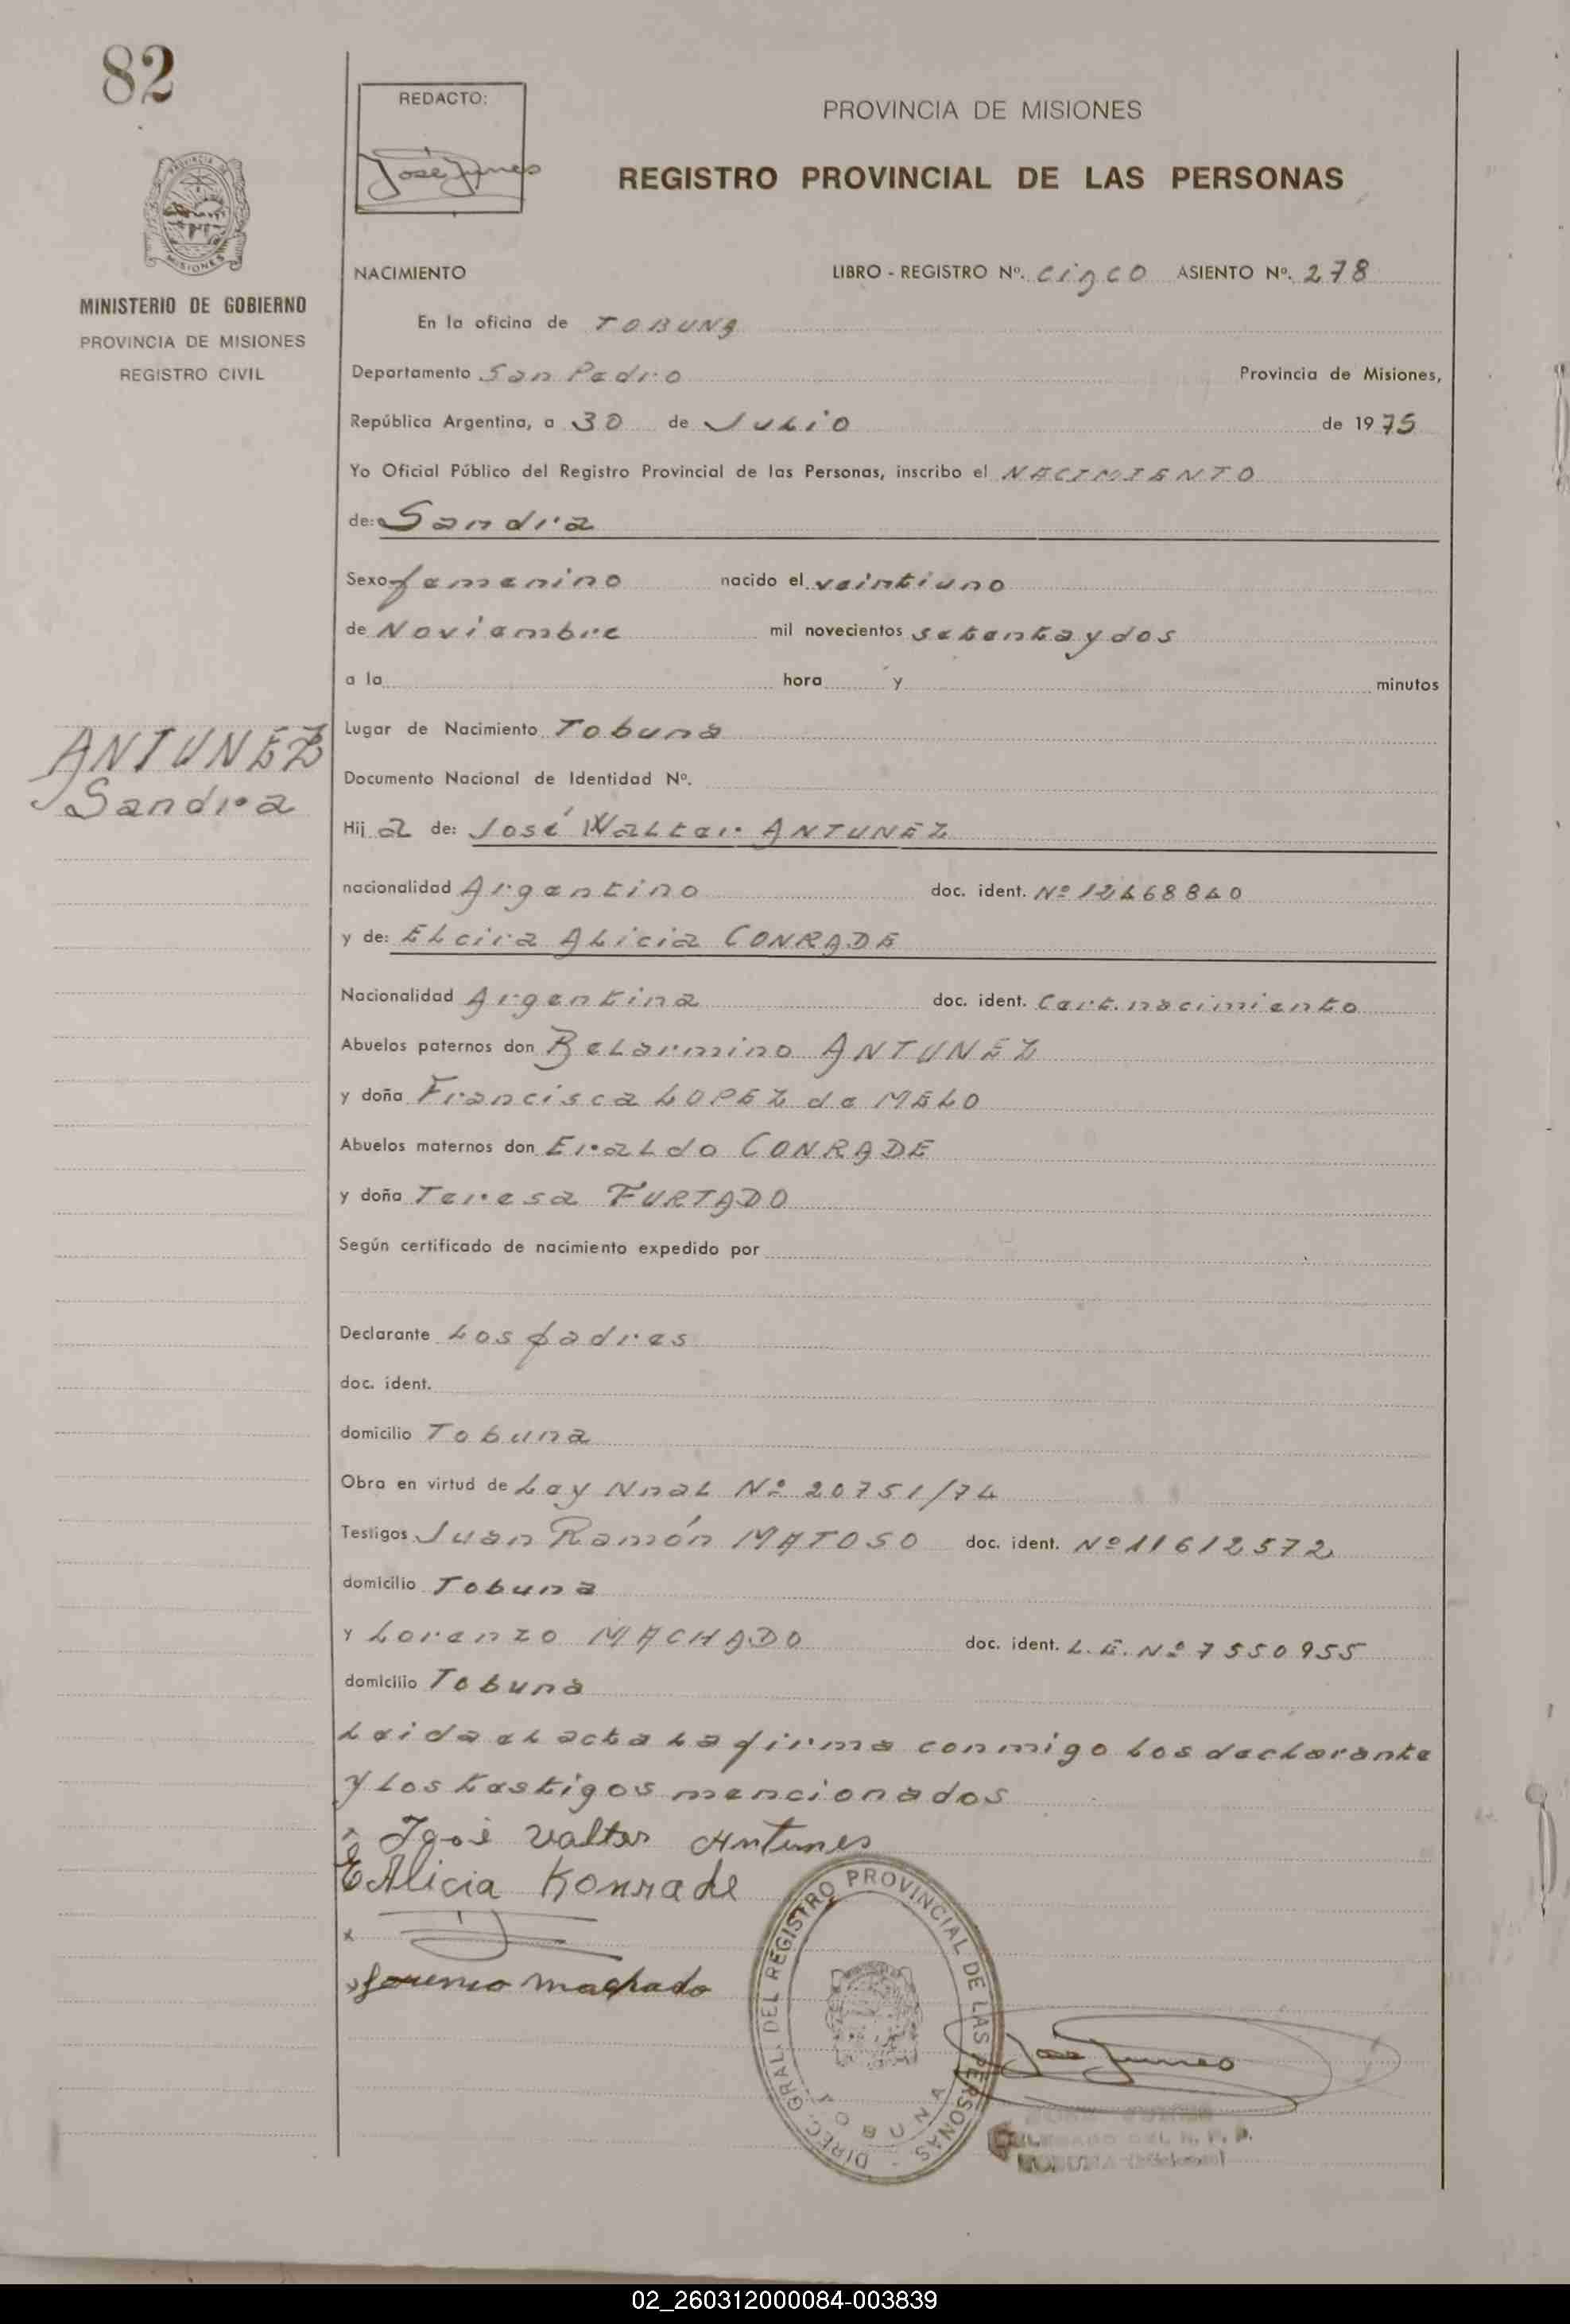 82
REDACTO:
PROVINCIA DE MISIONES
REGISTRO PROVINCIAL DE LAS PERSONAS
MISIONES
MINISTERIO DE GOBIERNO
PROVINCIA DE MISIONES
REGISTRO CIVIL
NACIMIENTO LIBRO - REGISTRO Nº. cinco ASIENTO Nº. 278
En la oficina de TOBUNA
Departamento San Pedro Provincia de Misiones,
República Argentina, a 30 de Julio de 1975
Yo Oficial Público del Registro Provincial de las Personas, inscribo el NACIMIENTO
de: Sandra
Sexo femenino nacido el veintiuno
de Noviembre mil novecientos setenta y dos
a la hora y minutos
Lugar de Nacimiento Tobuna
ANTUNEZ
Sandra
Documento Nacional de Identidad Nº.
Hij a de: José Walter ANTUNEZ
nacionalidad Argentino doc. ident. Nº 12468840
y de: Elcira Alicia CONRADE
Nacionalidad Argentina doc. ident. Cert. nacimiento
Abuelos paternos don Belarmino ANTUNEZ
y doña Francisca LOPEZ de MELO
Abuelos maternos don Eraldo CONRADE
y doña Teresa FURTADO
Según certificado de nacimiento expedido por
Declarante Los padres
doc. ident.
domicilio Tobuna
Obra en virtud de Ley Nnal Nº 20751/74
Testigos Juan Ramón MATOSO doc. ident. Nº 11612572
domicilio Tobuna
y Lorenzo MACHADO doc. ident. L.E. Nº 7550955
domicilio Tobuna
Leida el acta la firma conmigo los declarante
y los testigos mencionados
José Valter Antunes
E Alicia Konrade
Lorenso Machado
DIREC. GRAL. DEL REGISTRO PROVINCIAL DE LAS PERSONAS
TOBUNA
DELEGADO DEL R. P. P.
02_260312000084-003839